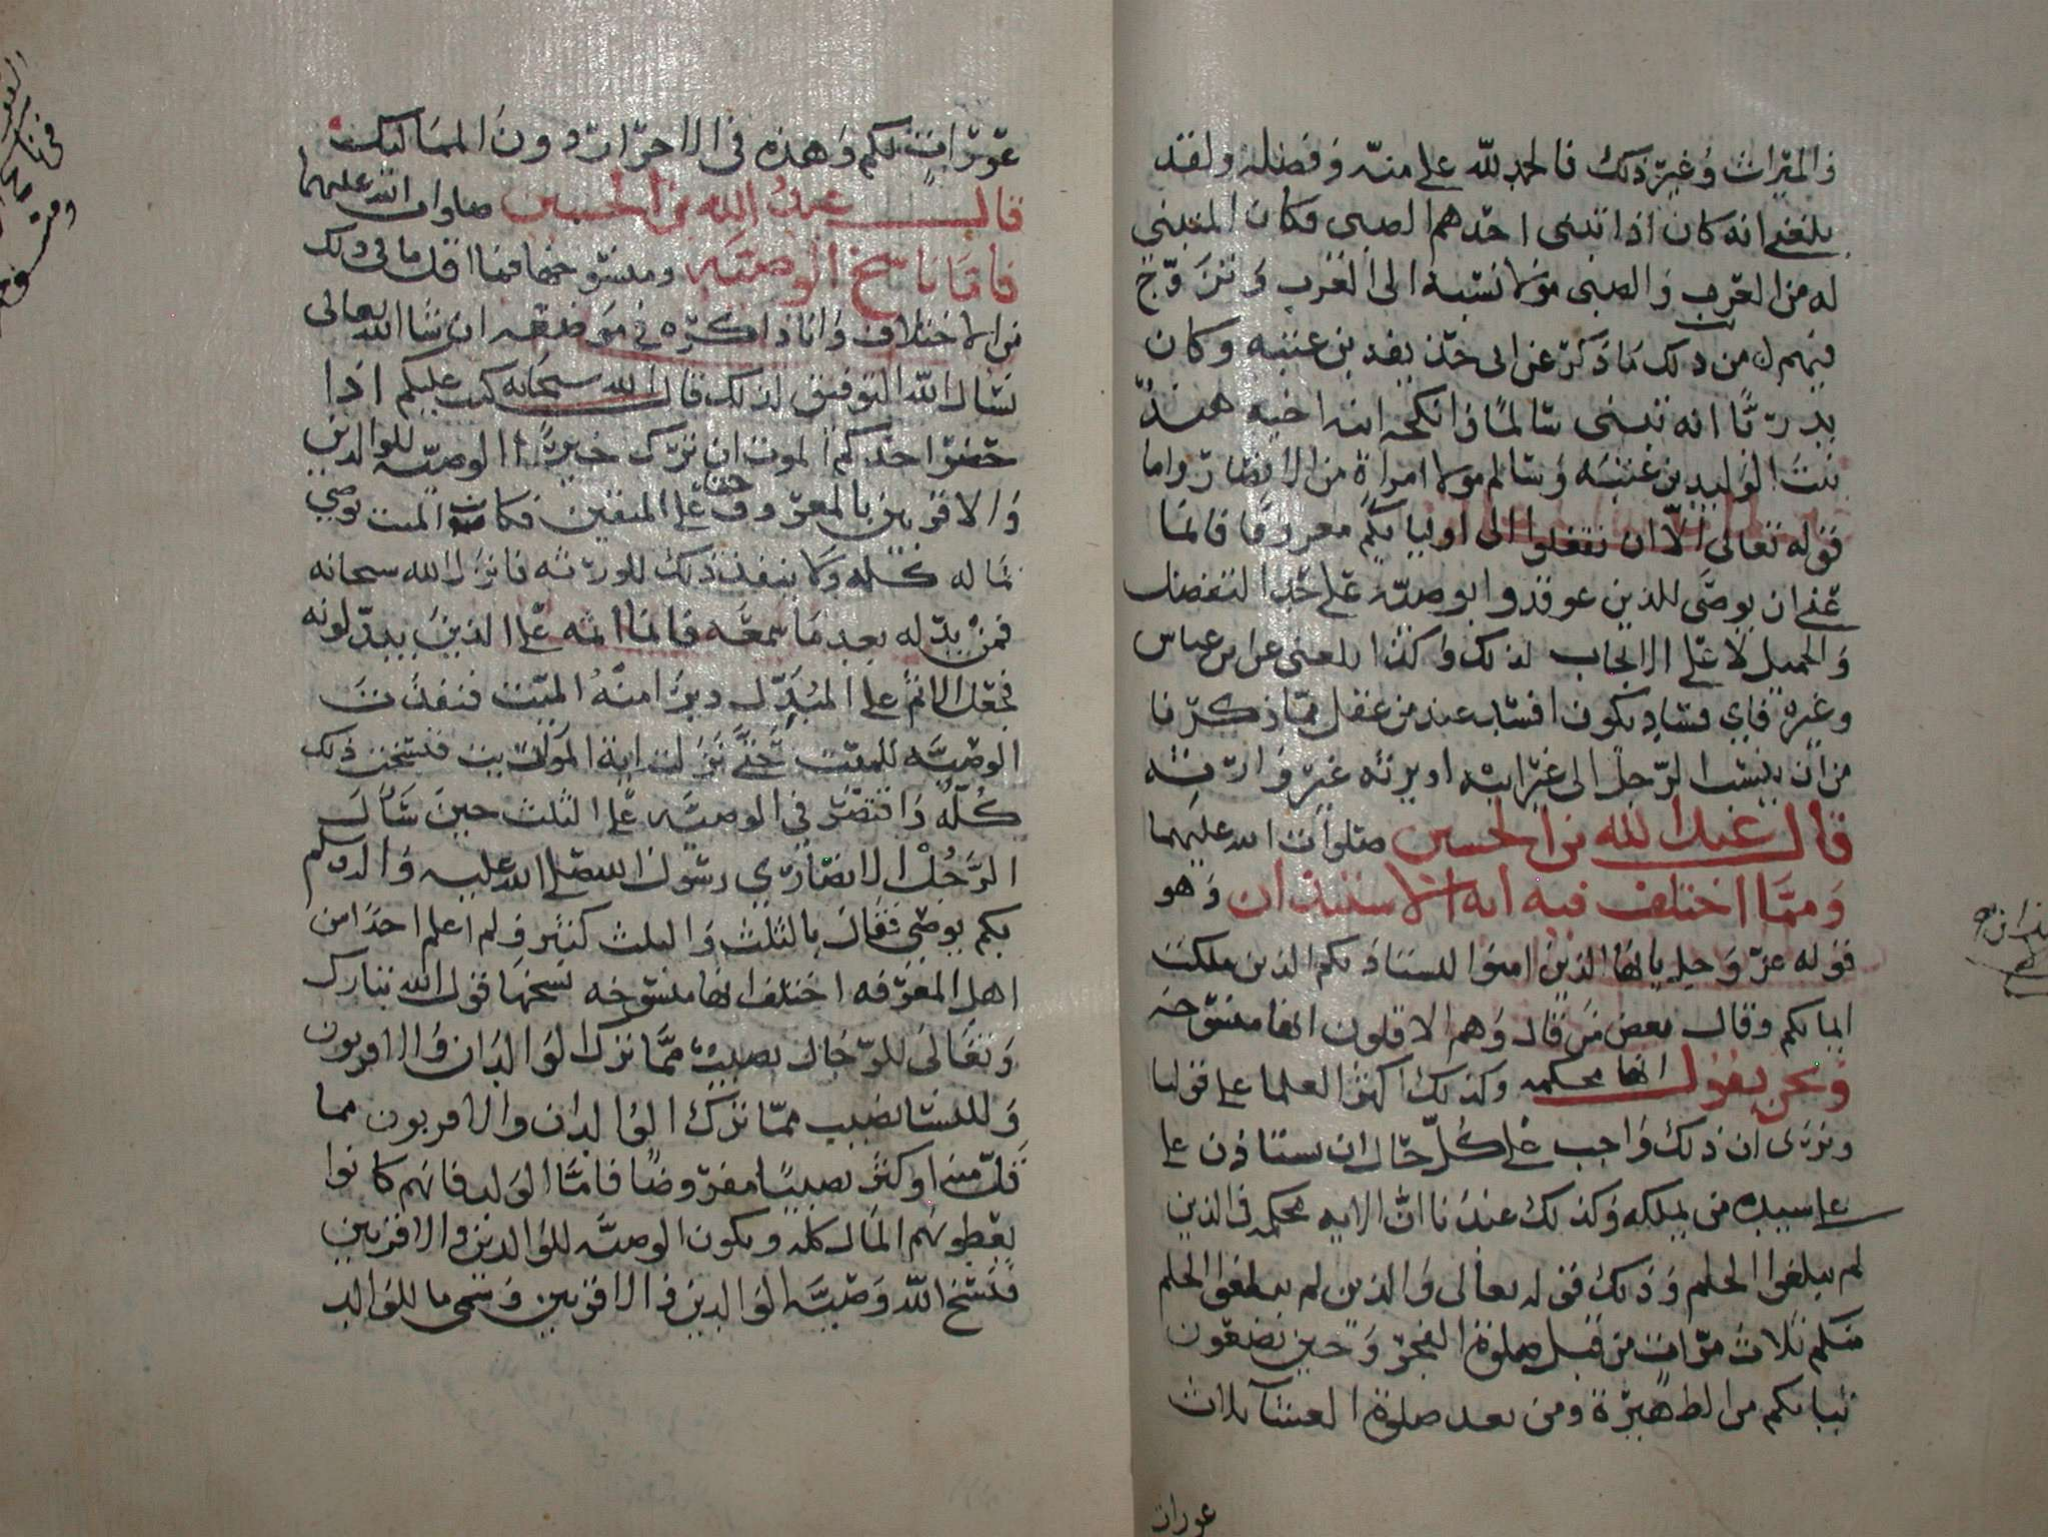 والميراث وغير ذلك فالحمد لله على منه وفضله ولقد
بلغني انه كان اذا تبنى احدهم الصبي فكان المتبني
له من العرب والصبي مولا نسبه الى العرب وتزوج
فيهم من ذلك ما ذكر عن ابي حذيفه بن عتبه وكان
بدريا انه تبنى سالما وانكحه ابنه اخيه هند
بنت الوليد بن عتبه وسالم مولا امراة من الانصار واما
قوله تعالى الا ان تفعلوا الى اوليايكم معروفا فانما
عنى ان يوصى للذين عوقدوا بوصيه على حد التفضل
والجميل لا على الايجاب لذلك وكذا بلغنى عن ابن عباس
وغيره فاي فساد يكون افسد عند من عقل مما ذكرنا
من ان ينسب الرجل الى غير ابيه او يرثه غير وارثه
قال عبد الله بن الحسين صلوات الله عليهما
ومما اختلف فيه ايه الاستيذان وهو
قوله عز وجل يايها الذين امنوا ليستاذنكم الذين ملكت
ايمانكم وقال بعض من قال وهم الاقلون انها منسوخه
ونحن نقول انها محكمه وكذلك اكثر العلما على قولنا
ونرى ان ذلك واجب على كل حال ان يستاذن على
على سيده من يملكه وكذلك عندنا ان الايه محكمه في الذين
لم يبلغوا الحلم وذلك قوله تعالى والذين لم يبلغوا الحلم
منكم ثلاث مرات من قبل صلوة الفجر وحين تضعون
ثيابكم من الظهيرة ومن بعد صلوة العشا ثلاث
عورات
عورات لكم وهذه في الاحرار دون المماليك
قال عبد الله بن الحسين صلوات الله عليهما
فاما ناسخ الوصيه ومنسوخها فما اقل ما في ذلك
من الاختلاف وانا ذاكره في موضعه ان شا الله تعالى
نسال الله التوفيق لذلك قال الله سبحانه كتب عليكم اذا
حضر احدكم الموت ان ترك خيرا الوصيه للوالدين
والاقربين بالمعروف حقا على المتقين فكان الميت يوصي
بماله كله ولا ينفذ ذلك للورثه فانزل الله سبحانه
فمن بدله بعد ما سمعه فانما اثمه على الذين يبدلونه
فجعل الاثم على المبدل وبرا منه الميت فنفذت
الوصيه للميت حتى نزلت اية المواريث فنسخت ذلك
كله واقتصر في الوصيه على الثلث حين سال
الرجل الانصاري رسول الله صلى الله عليه واله وسلم
بكم يوصي فقال بالثلث والثلث كثير ولم اعلم احدا من
اهل المعرفه اختلف انها منسوخه نسخها قول الله تبارك
وتعالى للرجال نصيب مما ترك الوالدان والاقربون
وللنسا نصيب مما ترك الوالدان والاقربون مما
قل منه او كثر نصيبا مفروضا فاما الولد فانهم كانوا
يعطونهم المال كله ويكون الوصيه للوالدين والاقربين
فنسخ الله وصيه الوالدين والاقربين وسمى ما للوالد